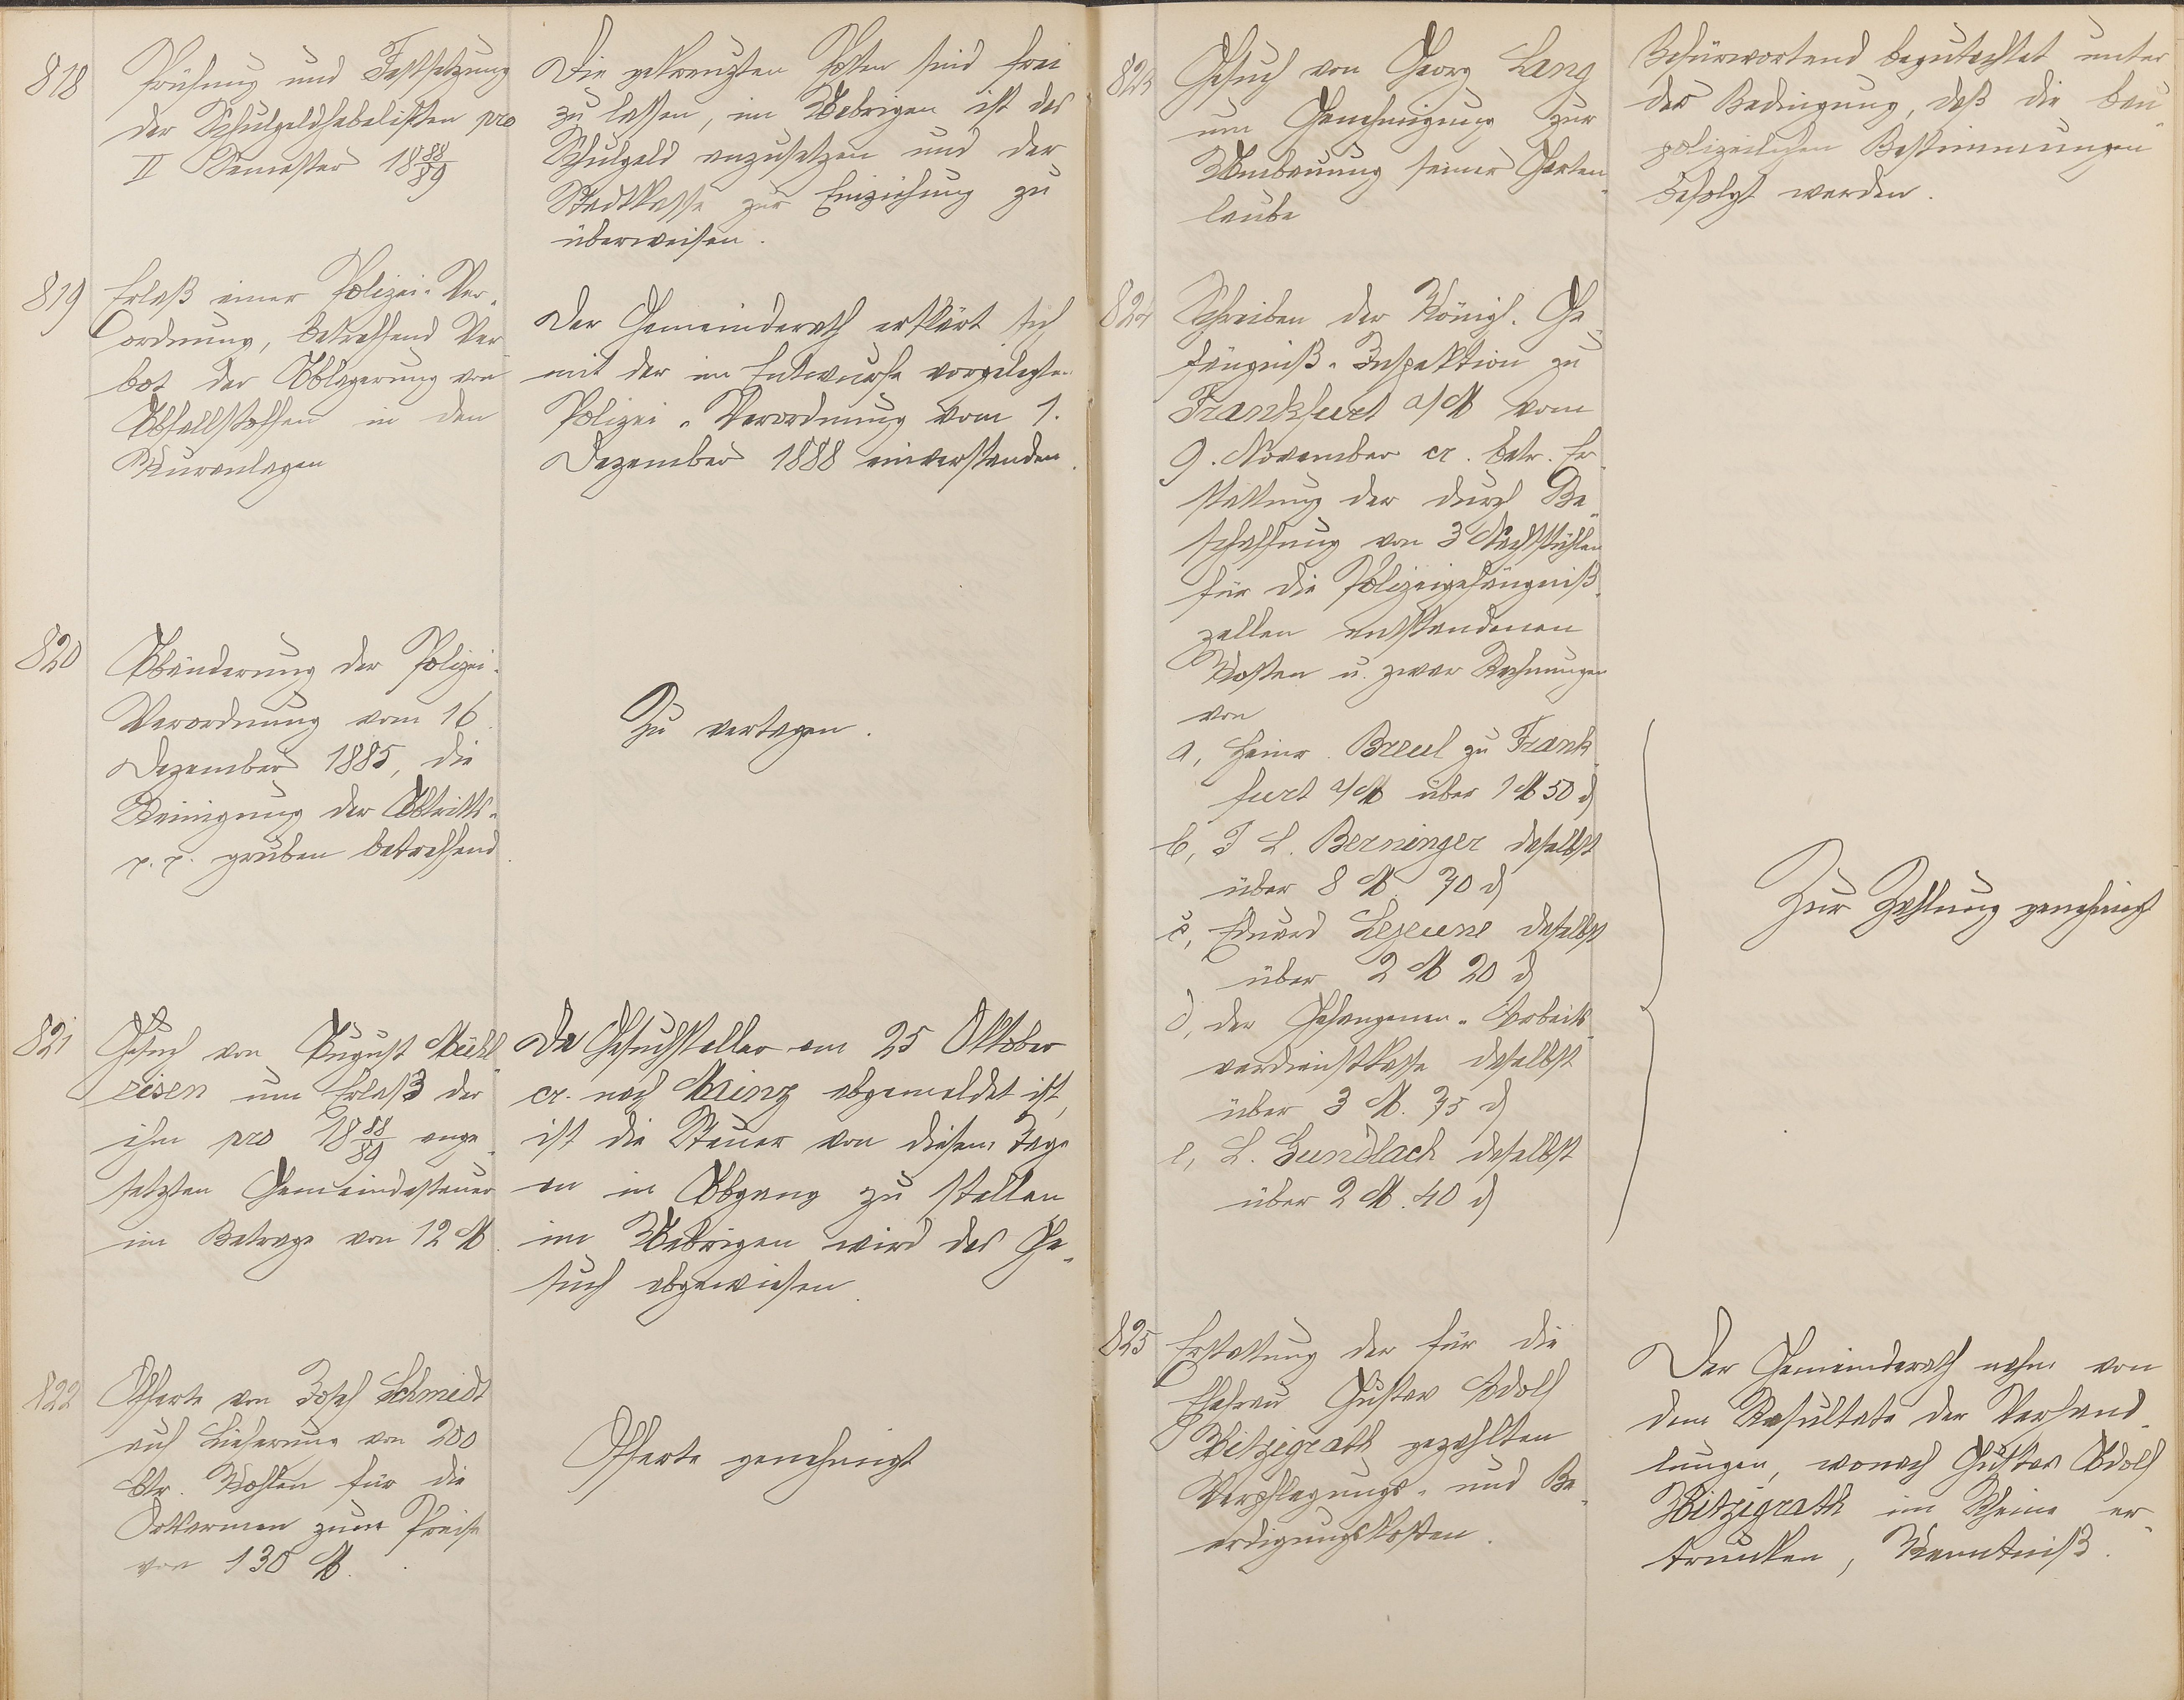 818
Prüfung und Festsetzung
der Schulgeldhebelisten pro
II Semester 18 88/89
Die gekreuzten Posten sind frei
zu lassen, im Uebrigen ist das
Schulgeld anzusetzen und der
Stadtkasse zur Einziehung zu
überweisen.
819
Erlaß einer Polizei-Ver-
ordnung, betreffend Ver-
bot der Ablagerung von
Abfallstoffen in den
Kuranlagen
Der Gemeinderath erklärt sich
mit der im Entwurfe vorgelegten
Polizei-Verordnung vom 1.
Dezember 1888 einverstanden.
820
Abänderung der Polizei-
Verordnung vom 16.
Dezember 1885, die
Reinigung der Abtritts-
p. p. gruben betreffend.
Zu vertagen.
821
Gesuch von August Mühl-
eisen um Erlaß der
ihm pro 18 88/89 ange-
setzten Gemeindesteuer
im Betrage von 12 M.
Da Gesuchsteller am 25 Oktober
cr. nach Mainz abgemeldet ist,
ist die Steuer von diesem Tage
an in Abgang zu stellen
im Uebrigen wird das Ge-
such abgewiesen.
822
Offerte von Josef Schmidt
auf Lieferung von 200
Ctr. Kohlen für die
Ortsarmen zum Preise
von 130 M.
Offerte genehmigt
823
Gesuch von Georg Lang
um Genehmigung zur
Umbauung seiner Garten-
laube
Befürwortend begutachtet unter
der Bedingung, daß die bau-
polizeilichen Bestimmungen
befolgt werden.
824
Schreiben der Königl. Ge-
fängniß-Inspektion zu
Frankfurt a/M vom
9. November cr. betr. Er-
stattung der durch Be-
schaffung von 3 Nachtstühlen
für die Polizeigefängniß-
zellen entstandenen
Kosten u. zwar Rechnungen
von
a, Heinr. Breul zu Frank-
furt a/M über 1 M 50 d
b, J L. Berninger daselbst
über 8 M. 70 d
c, Eduard Lejeune daselbst
über 2 M 20 d
d, der Gefangenen-Arbeits-
verdienstkasse daselbst
über 3 M. 75 d
e, L. Gundlach daselbst
über 2 M. 40 d
Zur Zahlung genehmigt
825
Erstattung der für die
Ehefrau Gustav Adolf
Hitzigrath gezahlten
Verpflegungs- und Be-
erdigungskosten.
Der Gemeinderath nahm von
dem Resultate der Verhand-
lungen, wonach Gustav Adolf
Hitzigrath im Rheine er-
trunken, Kenntniß.